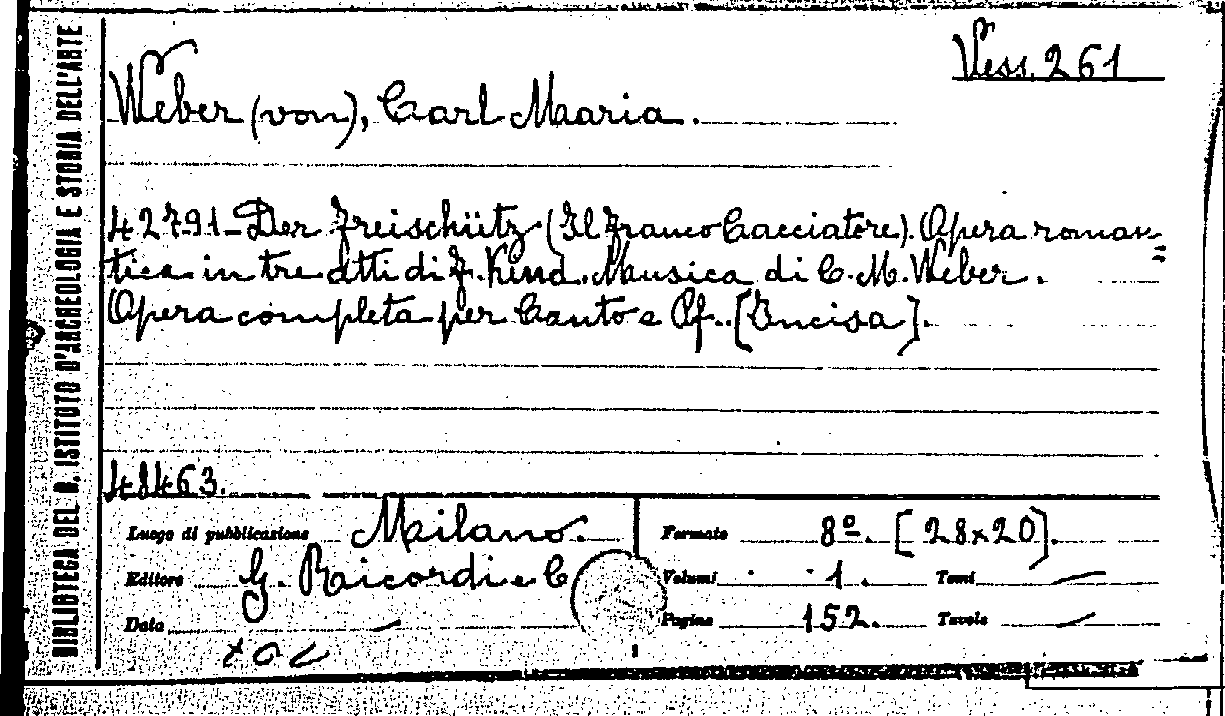 BIBLIOTECA DEL R. ISTITUTO D'ARCHEOLOGIA E STORIA DELL'ARTE
Vess. 261
Weber (von), Carl Maria.
42791-Der Freischütz (Il franco Cacciatore). Opera roman=
tica in tre atti di F. Kind. Musica di C. M. Weber.
Opera completa per Canto e Pf.. [Incisa].
48463.
Luogo di pubblicazione Milano.
Editore G. Ricordi e C
Data —
Formato 8º. [28x20].
Volumi 1. Tomi —
Pagine 152. Tavole —